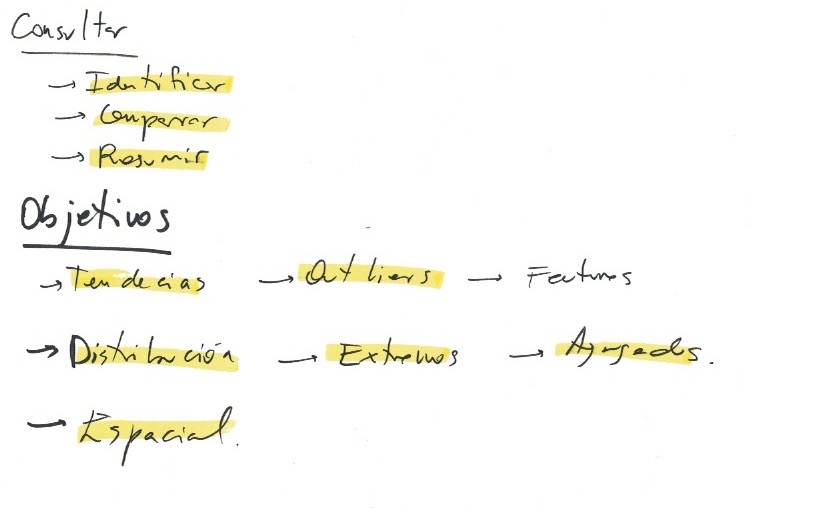 Consultar
→ Identificar
→ Comparar
→ Resumir
Objetivos
→ Tendecias → Outliers → Features
→ Distribución → Extremos → Agregados.
→ Espacial.